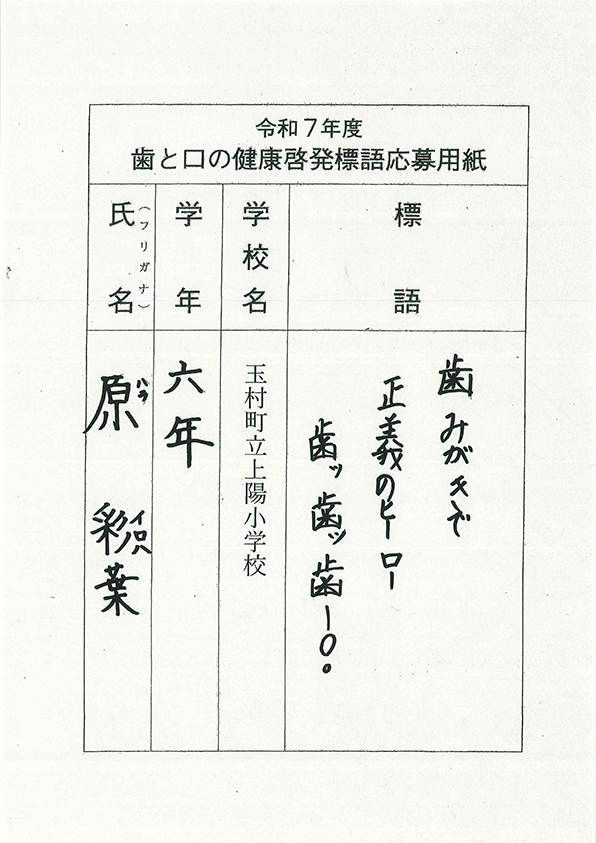 令和7年度
歯と口の健康啓発標語応募用紙
標語
歯みがきで
正義のヒーロー
歯ッ歯ッ歯ー!
学校名
玉村町立上陽小学校
学年
六年
氏名
(フリガナ)
原 彩葉
ハラ イロハ